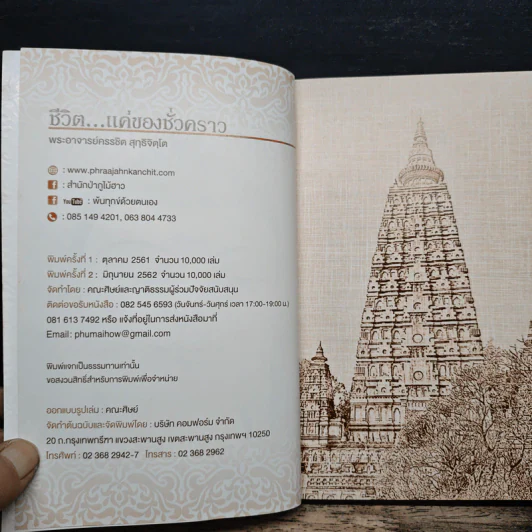 ชีวิต...แค่ของชั่วคราว
พระอาจารย์ครรชิต สุทฺธิจิตฺโต
: www.phraajahnkanchit.com
: สำนักป่าภูไม้ฮาว
YouTube : พ้นทุกข์ด้วยตนเอง
: 085 149 4201, 063 804 4733
พิมพ์ครั้งที่ 1 : ตุลาคม 2561 จำนวน 10,000 เล่ม
พิมพ์ครั้งที่ 2 : มิถุนายน 2562 จำนวน 10,000 เล่ม
จัดทำโดย : คณะศิษย์และญาติธรรมผู้ร่วมปัจจัยสนับสนุน
ติดต่อขอรับหนังสือ : 082 545 6593 (วันจันทร์-วันศุกร์ เวลา 17:00-19:00 น.)
081 613 7492 หรือ แจ้งที่อยู่ในการส่งหนังสือมาที่
Email: phumaihow@gmail.com
พิมพ์แจกเป็นธรรมทานเท่านั้น
ขอสงวนสิทธิ์สำหรับการพิมพ์เพื่อจำหน่าย
ออกแบบรูปเล่ม : คณะศิษย์
จัดทำต้นฉบับและจัดพิมพ์โดย : บริษัท คอมฟอร์ม จำกัด
20 ถ.กรุงเทพกรีฑา แขวงสะพานสูง เขตสะพานสูง กรุงเทพฯ 10250
โทรศัพท์ : 02 368 2942-7 โทรสาร : 02 368 2962